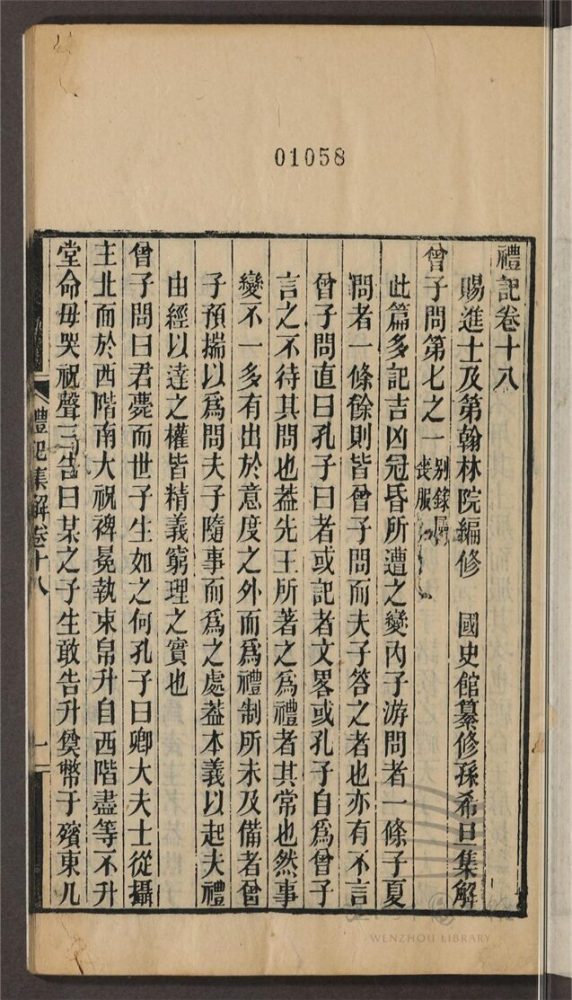 01058
禮記卷十八
賜進士及第翰林院編修　國史館纂修孫希旦集解
曾子問第七之一 別錄屬喪服
此篇多記吉凶冠昏所遭之變內子游問者一條子夏
問者一條餘則皆曾子問而夫子答之者也亦有不言
曾子問直曰孔子曰者或記者文畧或孔子自爲曾子
言之不待其問也葢先王所著之爲禮者其常也然事
變不一多有出於意度之外而爲禮制所未及備者曾
子預揣以爲問夫子隨事而爲之處葢本義以起夫禮
由經以達之權皆精義窮理之實也
曾子問曰君薨而世子生如之何孔子曰卿大夫士從攝
主北面於西階南大祝裨冕執束帛升自西階盡等不升
堂命毋哭祝聲三告曰某之子生敢告升奠幣于殯東几
禮記集解卷十八
一
WENZHOU LIBRARY